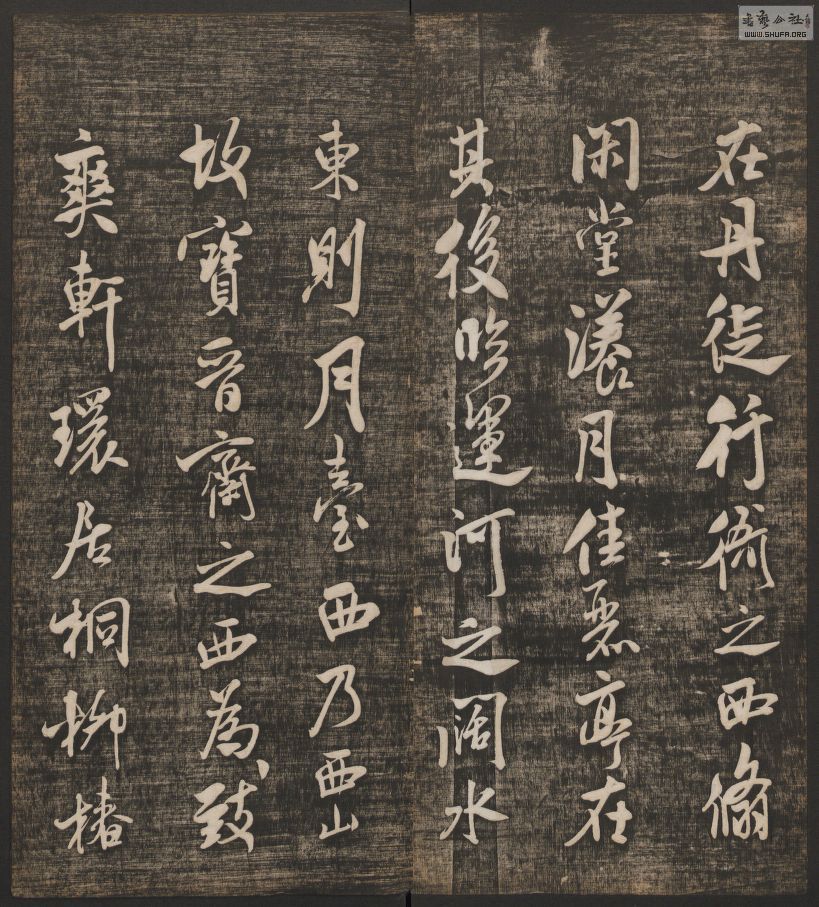 在丹徒行衙之西翛
閑堂漾月佳麗亭在
其後臨運河之闊水
東則月臺西乃西山
故寶晉齋之西為致
爽軒環居桐柳椿
書藝公社
WWW.SHUFA.ORG